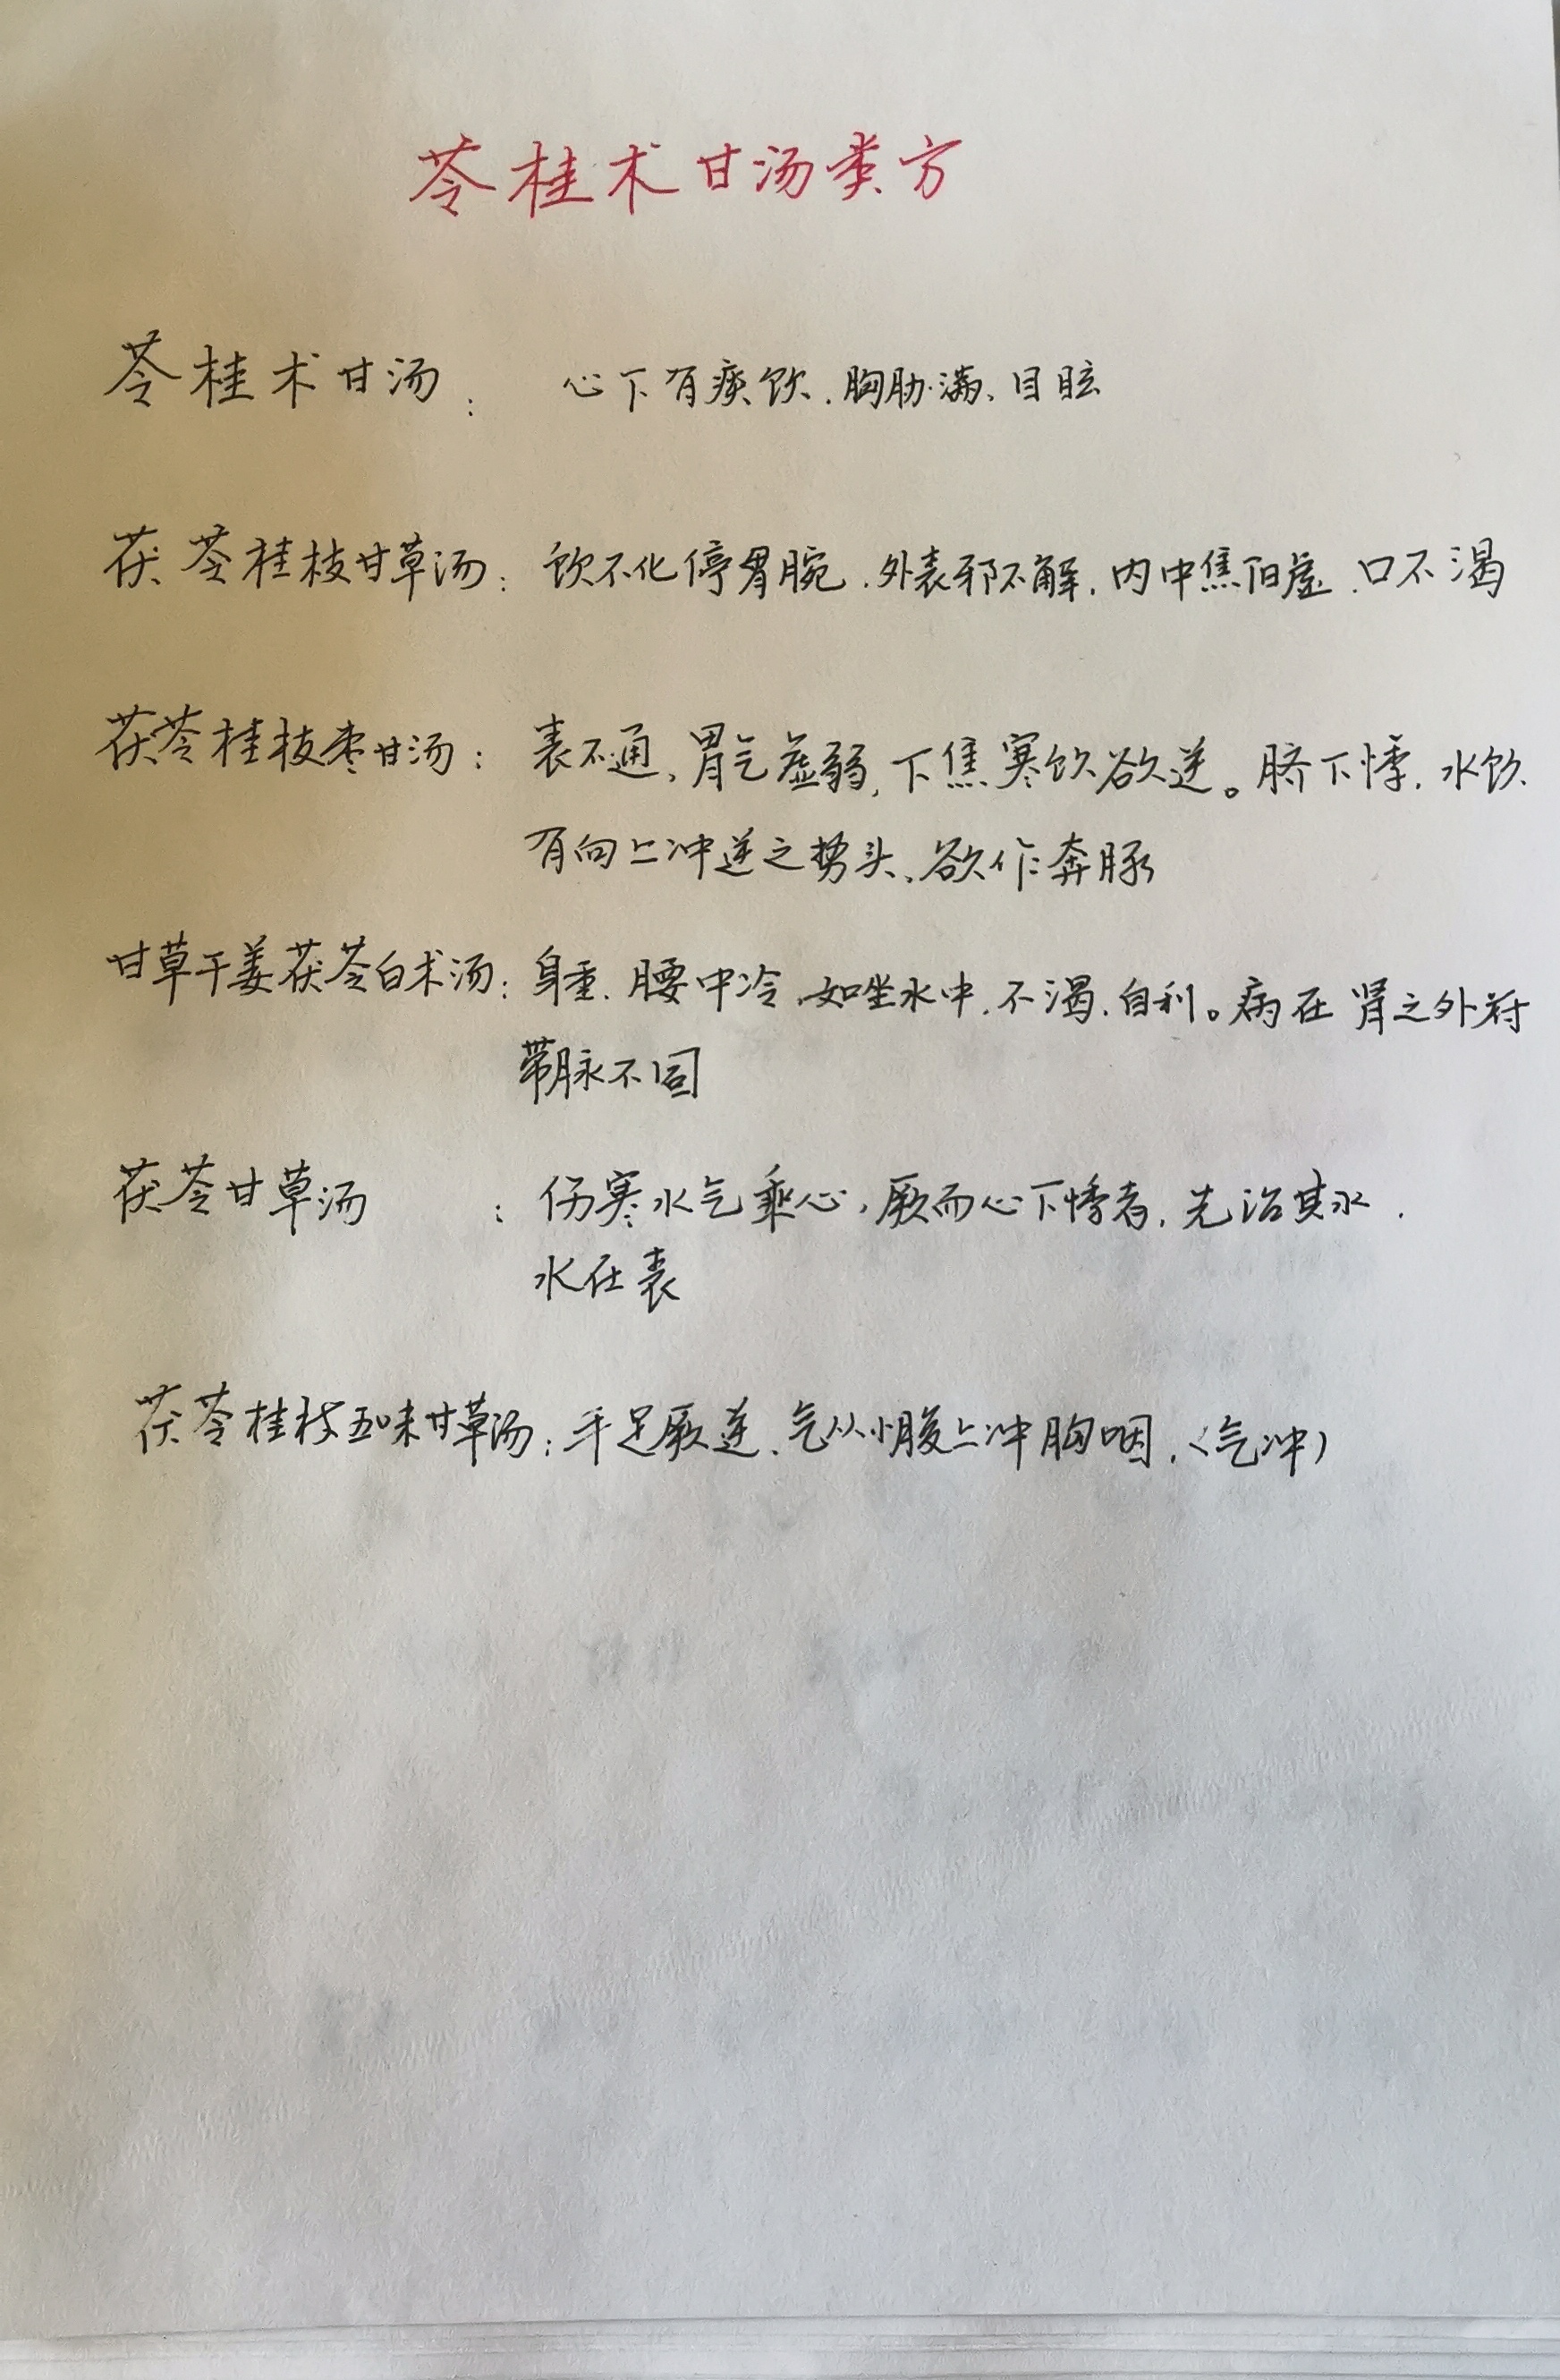 苓桂术甘汤类方
苓桂术甘汤： 心下有痰饮.胸胁满、目眩
茯苓桂枝甘草汤：饮不化停胃腕.外表邪不解.内中焦阳虚.口不渴
茯苓桂枝枣甘汤：表不通,胃气虚弱,下焦寒饮欲逆。脐下悸.水饮
有向上冲逆之势头、欲作奔豚
甘草干姜茯苓白术汤：身重.腰中冷.如坐水中.不渴.自利。病在肾之外府
带脉不固
茯苓甘草汤 ：伤寒水气乘心,厥而心下悸者,先治其水.
水在表
茯苓桂枝五味甘草汤：手足厥逆、气从小腹上冲胸咽.(气冲)